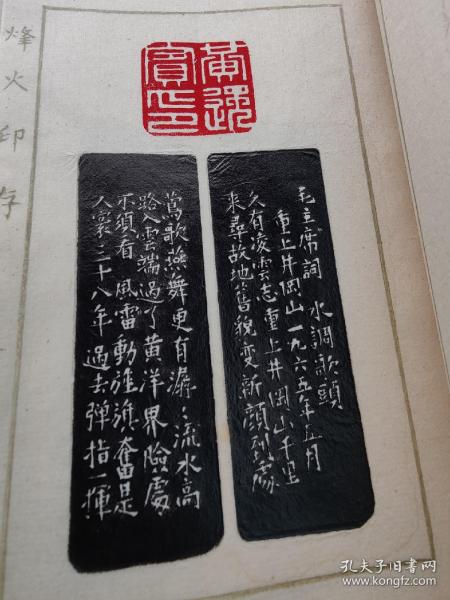 烽火印存
黃逸賓印
毛主席詞 水調歌頭
重上井岡山一九六五年五月
久有凌雲志重上井岡山千里
來尋故地舊貌變新顔到處
鶯歌燕舞更有潺〻流水高
路入雲端過了黄洋界險處
不須看 風雷動旌旗奮是
人寰三十八年過去彈指一揮
孔夫子旧书网
www.kongfz.com